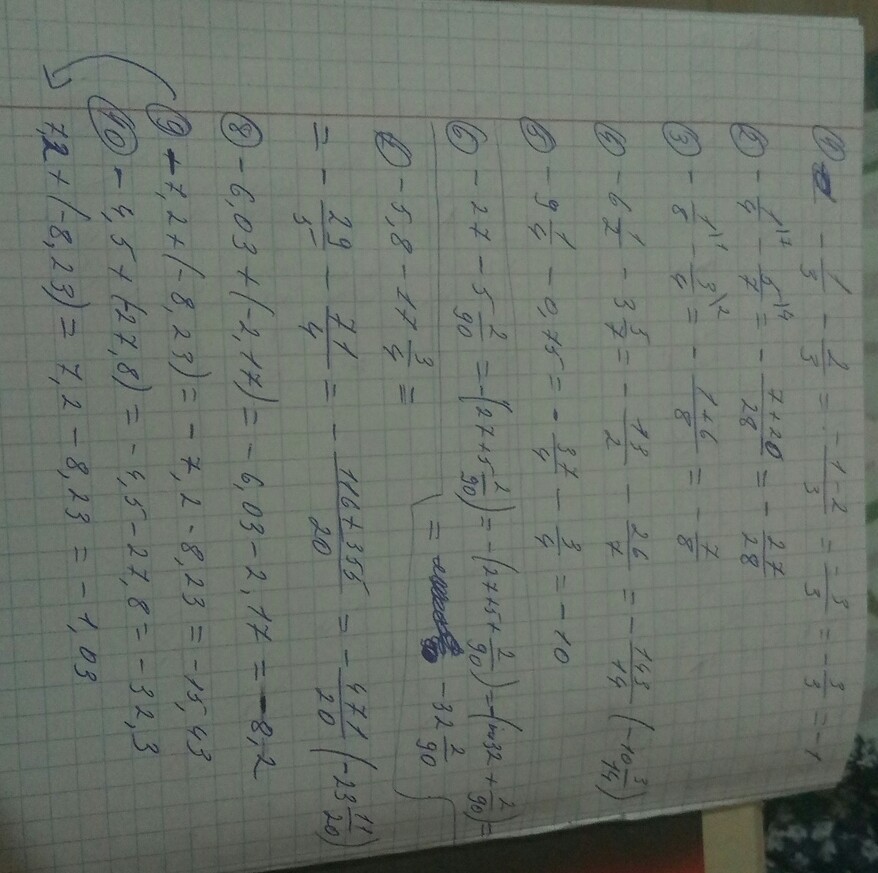 ① - 1/3 - 2/3 = -1-2/3 = -3/3 = - 3/3 = -1
② - 1/4 \7 - 5/7 \4 = - 7+20/28 = - 27/28
③ - 1/8 \1 - 3/4 \2 = - 1+6/8 = - 7/8
- 6 1/7 - 3 5/7 = - 13/2 - 26/7 = - 143/14 (-10 3/14)
- 9 1/4 - 0,75 = - 37/4 - 3/4 = -10
⑥ - 27 - 5 2/90 = -(27+5 2/90) = -(27+5+ 2/90) = -(32 + 2/90) =
= - 32 2/90
- 5,8 - 17 3/4 =
= - 29/5 - 71/4 = - 116+355/20 = - 471/20 (-23 11/20)
⑧ - 6,03 + (-2,17) = - 6,03 - 2,17 = - 8,2
⑨ - 7,2 + (-8,23) = - 7,2 - 8,23 = -15,43
⑩ - 4,5 + (-27,8) = - 4,5 - 27,8 = - 32,3
7,2 + (-8,23) = 7,2 - 8,23 = - 1,03